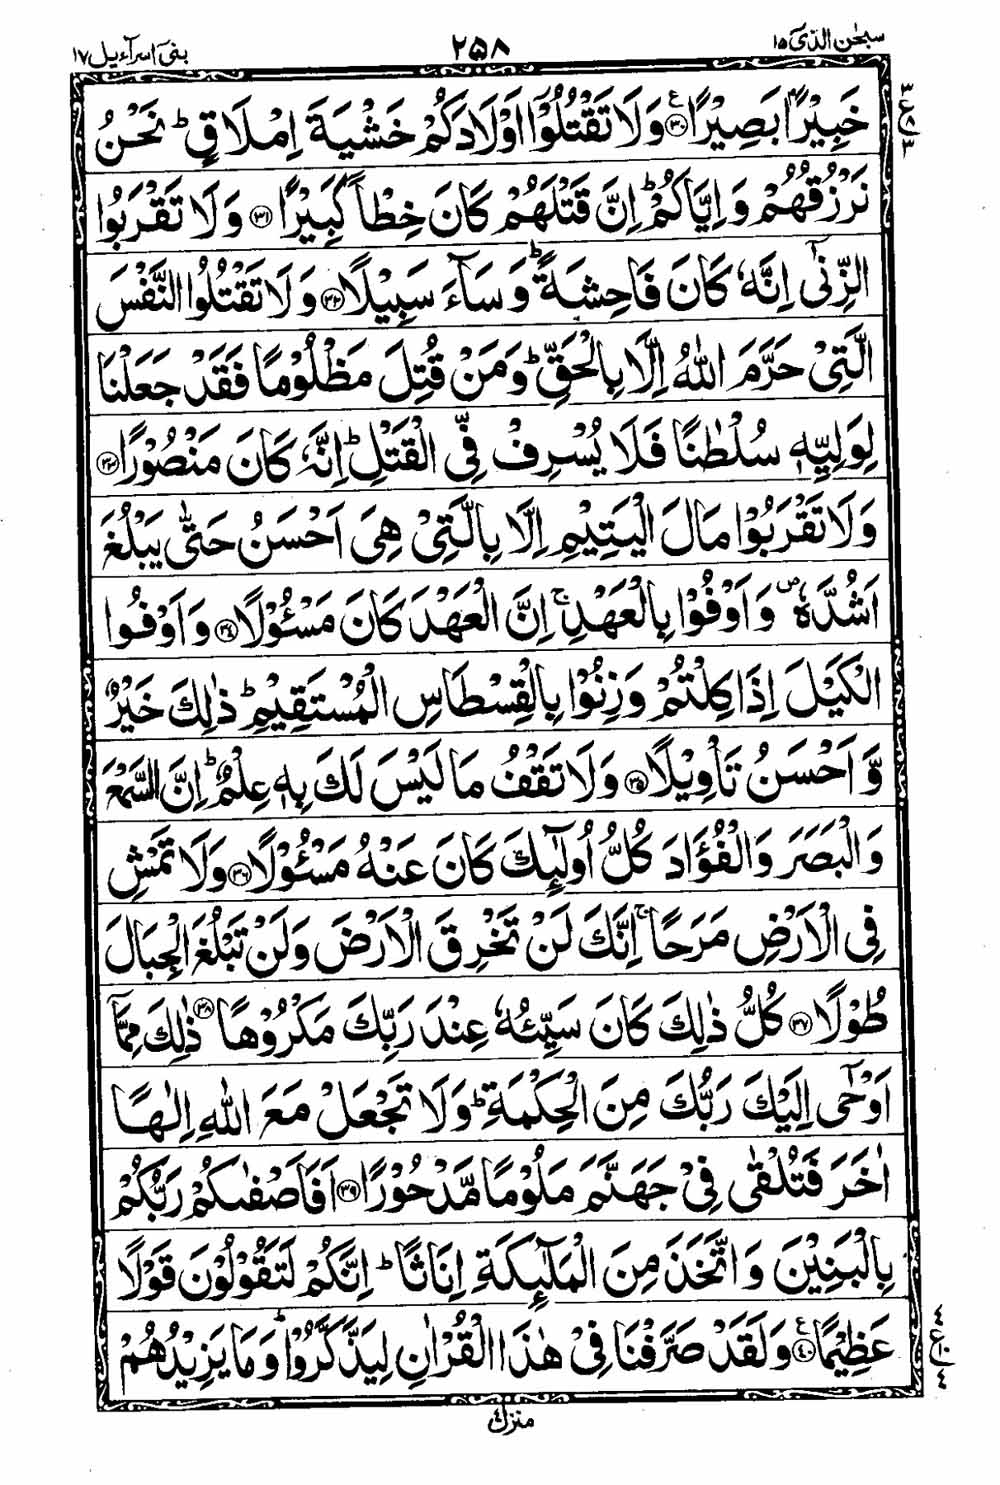 سبحٰن الذی ١٥ ٢٥٨ بنیٓ اسرآءیل ١٧
خَبِیْرًۢا بَصِیْرًا ﴿٣٠﴾ وَ لَا تَقْتُلُوْۤا اَوْلَادَكُمْ خَشْیَةَ اِمْلَاقٍ ؕ نَحْنُ
نَرْزُقُهُمْ وَ اِیَّاكُمْ ؕ اِنَّ قَتْلَهُمْ كَانَ خِطْاً كَبِیْرًا ﴿٣١﴾ وَ لَا تَقْرَبُوا
الزِّنٰۤی اِنَّهٗ كَانَ فَاحِشَةً ؕ وَ سَآءَ سَبِیْلًا ﴿٣٢﴾ وَ لَا تَقْتُلُوا النَّفْسَ
الَّتِیْ حَرَّمَ اللّٰهُ اِلَّا بِالْحَقِّ ؕ وَ مَنْ قُتِلَ مَظْلُوْمًا فَقَدْ جَعَلْنَا
لِوَلِیِّهٖ سُلْطٰنًا فَلَا یُسْرِفْ فِّی الْقَتْلِ ؕ اِنَّهٗ كَانَ مَنْصُوْرًا ﴿٣٣﴾
وَ لَا تَقْرَبُوْا مَالَ الْیَتِیْمِ اِلَّا بِالَّتِیْ هِیَ اَحْسَنُ حَتّٰی یَبْلُغَ
اَشُدَّهٗ ۪ وَ اَوْفُوْا بِالْعَهْدِ ۚ اِنَّ الْعَهْدَ كَانَ مَسْـُٔوْلًا ﴿٣٤﴾ وَ اَوْفُوا
الْكَیْلَ اِذَا كِلْتُمْ وَ زِنُوْا بِالْقِسْطَاسِ الْمُسْتَقِیْمِ ؕ ذٰلِكَ خَیْرٌ
وَّ اَحْسَنُ تَاْوِیْلًا ﴿٣٥﴾ وَ لَا تَقْفُ مَا لَیْسَ لَكَ بِهٖ عِلْمٌ ؕ اِنَّ السَّمْعَ
وَ الْبَصَرَ وَ الْفُؤَادَ كُلُّ اُولٰٓىِٕكَ كَانَ عَنْهُ مَسْـُٔوْلًا ﴿٣٦﴾ وَ لَا تَمْشِ
فِی الْاَرْضِ مَرَحًا ۚ اِنَّكَ لَنْ تَخْرِقَ الْاَرْضَ وَ لَنْ تَبْلُغَ الْجِبَالَ
طُوْلًا ﴿٣٧﴾ كُلُّ ذٰلِكَ كَانَ سَیِّئُهٗ عِنْدَ رَبِّكَ مَكْرُوْهًا ﴿٣٨﴾ ذٰلِكَ مِمَّاۤ
اَوْحٰۤی اِلَیْكَ رَبُّكَ مِنَ الْحِكْمَةِ ؕ وَ لَا تَجْعَلْ مَعَ اللّٰهِ اِلٰهًا
اٰخَرَ فَتُلْقٰی فِیْ جَهَنَّمَ مَلُوْمًا مَّدْحُوْرًا ﴿٣٩﴾ اَفَاَصْفٰىكُمْ رَبُّكُمْ
بِالْبَنِیْنَ وَ اتَّخَذَ مِنَ الْمَلٰٓىِٕكَةِ اِنَاثًا ؕ اِنَّكُمْ لَتَقُوْلُوْنَ قَوْلًا
عَظِیْمًا ﴿٤٠﴾ وَ لَقَدْ صَرَّفْنَا فِیْ هٰذَا الْقُرْاٰنِ لِیَذَّكَّرُوْا ؕ وَ مَا یَزِیْدُهُمْ
منزل ٤